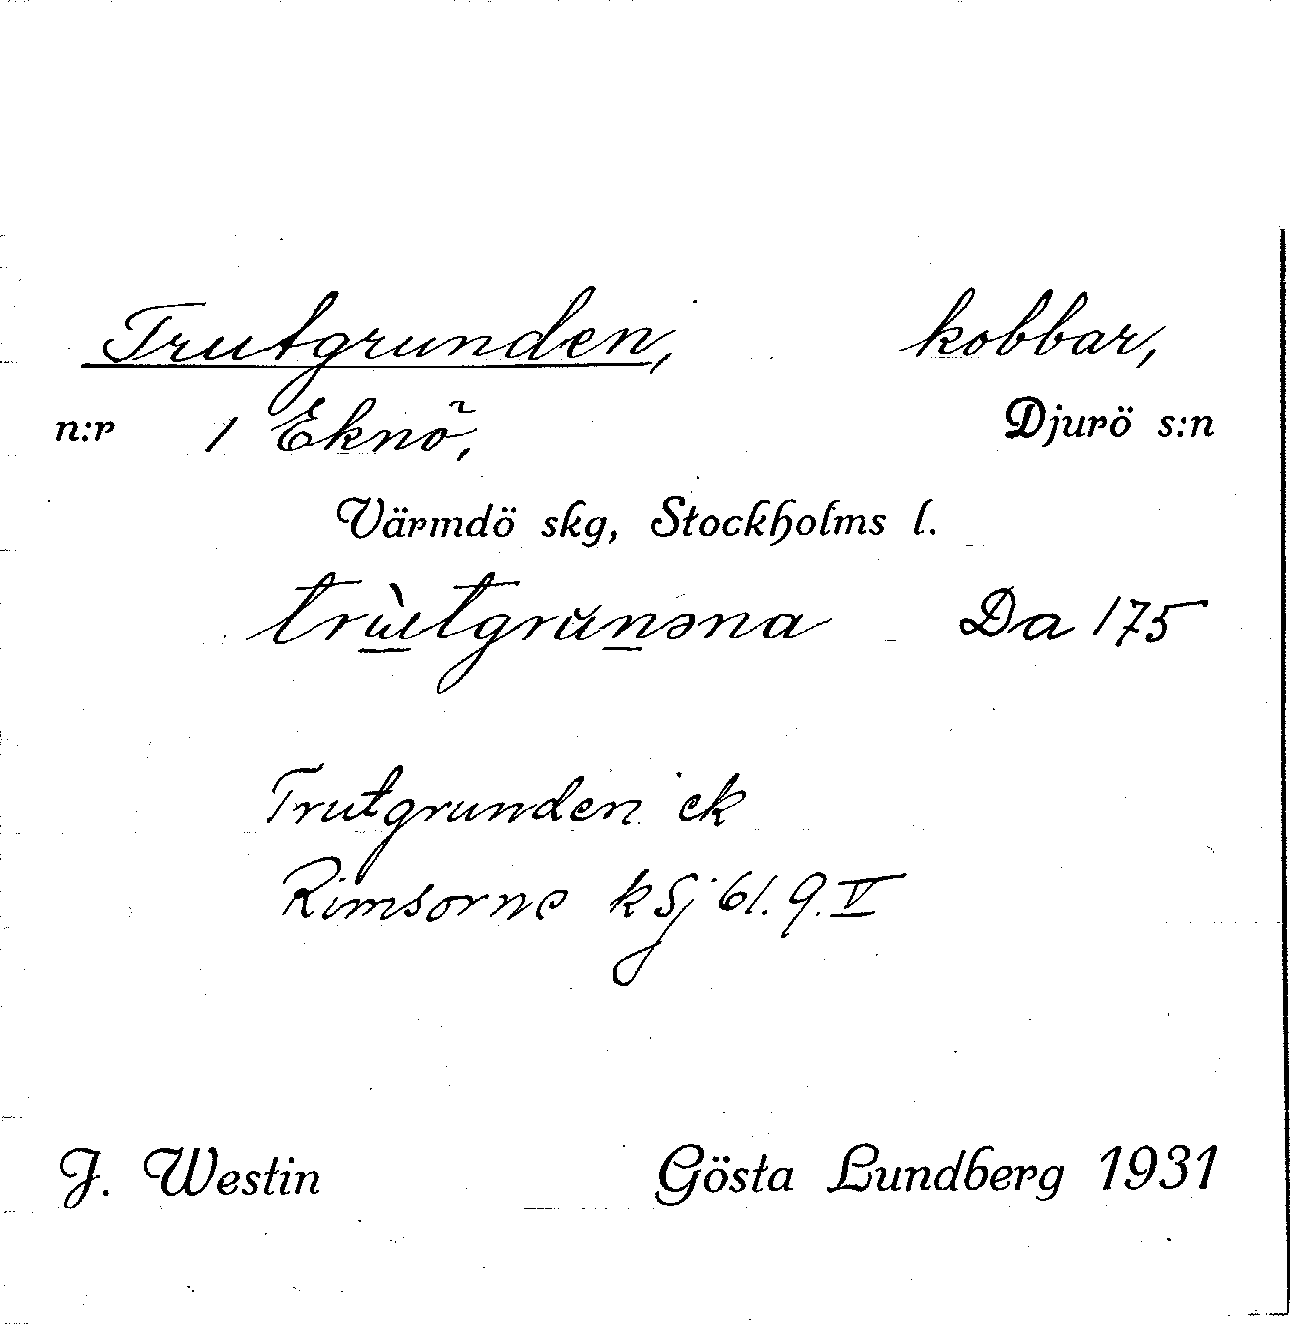 Trutgrunden, kobbar,
n:r 1 Eknö, Djurö s:n
Värmdö skg, Stockholms l.
trùtgrunəna Da 175
Trutgrunden ek
Rimsorne ksj 61.9.V
J. Westin Gösta Lundberg 1931